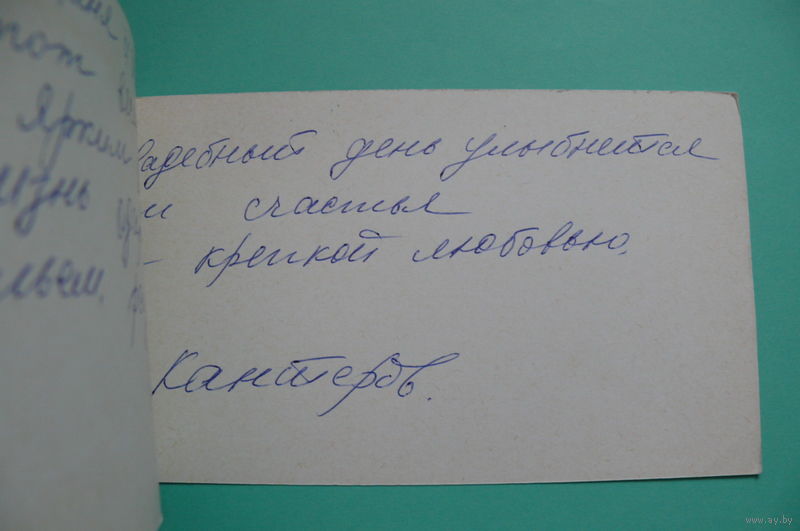 тот
ярким
жизнь
свадебный день улыбнется
и счастья
- крепкой любовью.
Кантеров.
www.ay.by